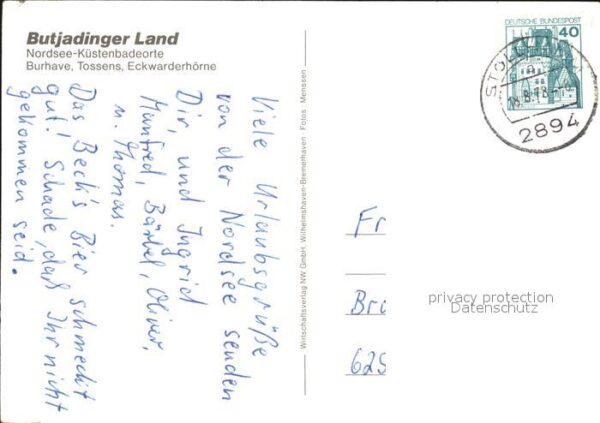 Butjadinger Land
Nordsee-Küstenbadeorte
Burhave, Tossens, Eckwarderhörne
Viele Urlaubsgrüße
von der Nordsee senden
Dir, und Ingrid
Manfred, Bärbel, Oliver,
u. Thomas.
Das Beck's Bier schmeckt
gut! Schade, daß Ihr nicht
gekommen seid.
Wirtschaftsverlag NW GmbH. Wilhelmshaven-Bremerhaven Fotos: Menssen
DEUTSCHE BUNDESPOST
40
2894
Fr
Bri
629
privacy protection
Datenschutz